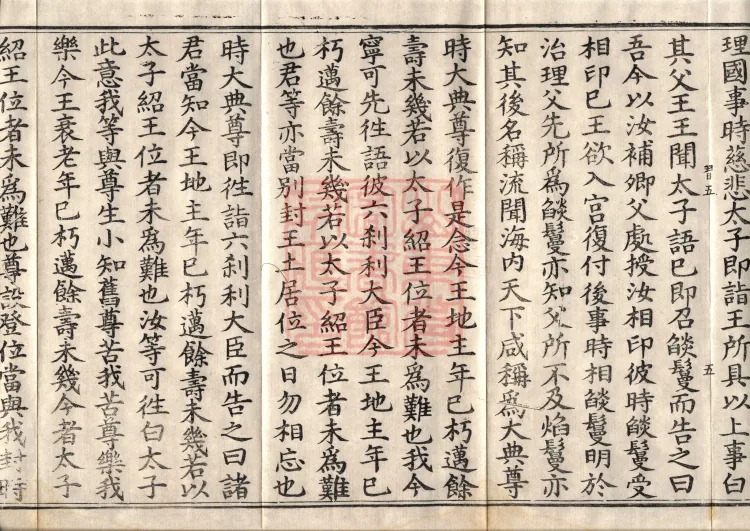 理國事時慈悲太子即詣王所具以上事白
習五
五
其父王王聞太子語已即召燄鬘而告之曰
吾今以汝補卿父處授汝相印彼時燄鬘受
相印已王欲入宮復付後事時相燄鬘明於
治理父先所爲燄鬘亦知父所不及焰鬘亦
知其後名稱流聞海内天下咸稱爲大典尊
時大典尊復作是念今王地主年已朽邁餘
壽未幾若以太子紹王位者未爲難也我今
寧可先徃語彼六剎利大臣今王地主年已
朽邁餘壽未幾若以太子紹王位者未爲難
也君等亦當別封王土居位之日勿相忘也
時大典尊即徃詣六剎利大臣而告之曰諸
君當知今王地主年已朽邁餘壽未幾若以
太子紹王位者未爲難也汝等可徃白太子
此意我等與尊生小知舊尊苦我苦尊樂我
樂今王衰老年已朽邁餘壽未幾今者太子
紹王位者未爲難也尊設登位當與我封時